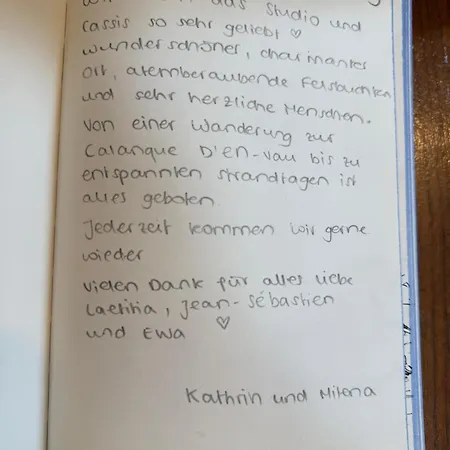 das Studio und
Cassis so sehr geliebt ♡
wunderschöner, charmanter
Ort, atemberaubende Felsbuchten
und sehr herzliche Menschen.
Von einer Wanderung zur
Calanque D'en-vau bis zu
entspannten strandtagen ist
alles geboten.
Jederzeit kommen wir gerne
wieder
vielen Dank für alles liebe
Laetitia, Jean-Sébastien
und EWA ♡
Kathrin und Milena